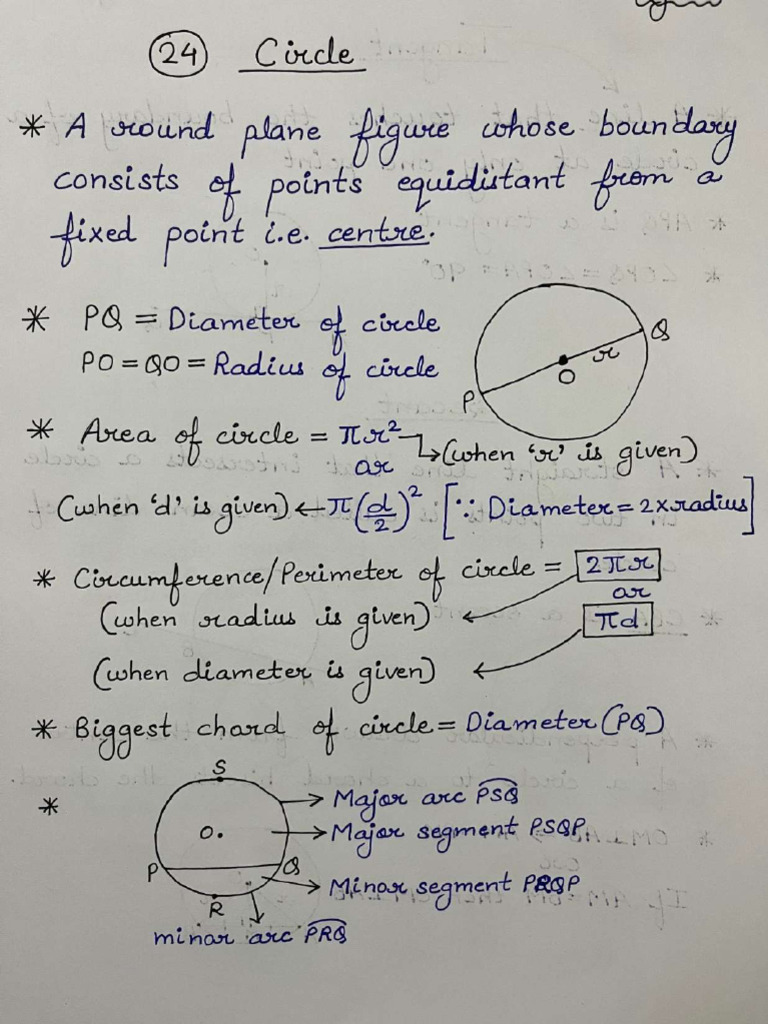 24 Circle
* A round plane figure whose boundary
consists of points equidistant from a
fixed point i.e. centre.
* PQ = Diameter of circle
PO = QO = Radius of circle
P O r Q
* Area of circle = πr² → (when 'r' is given)
or
(when 'd' is given) ← π(d/2)² [∵ Diameter = 2 x radius]
* Circumference/Perimeter of circle = 2πr
or
(when radius is given)
πd.
(when diameter is given)
* Biggest chard of circle = Diameter (PQ)
S
* → Major arc PSQ
O. → Major segment PSQP
P Q
→ Minor segment PRQP
R
minor arc PRQ